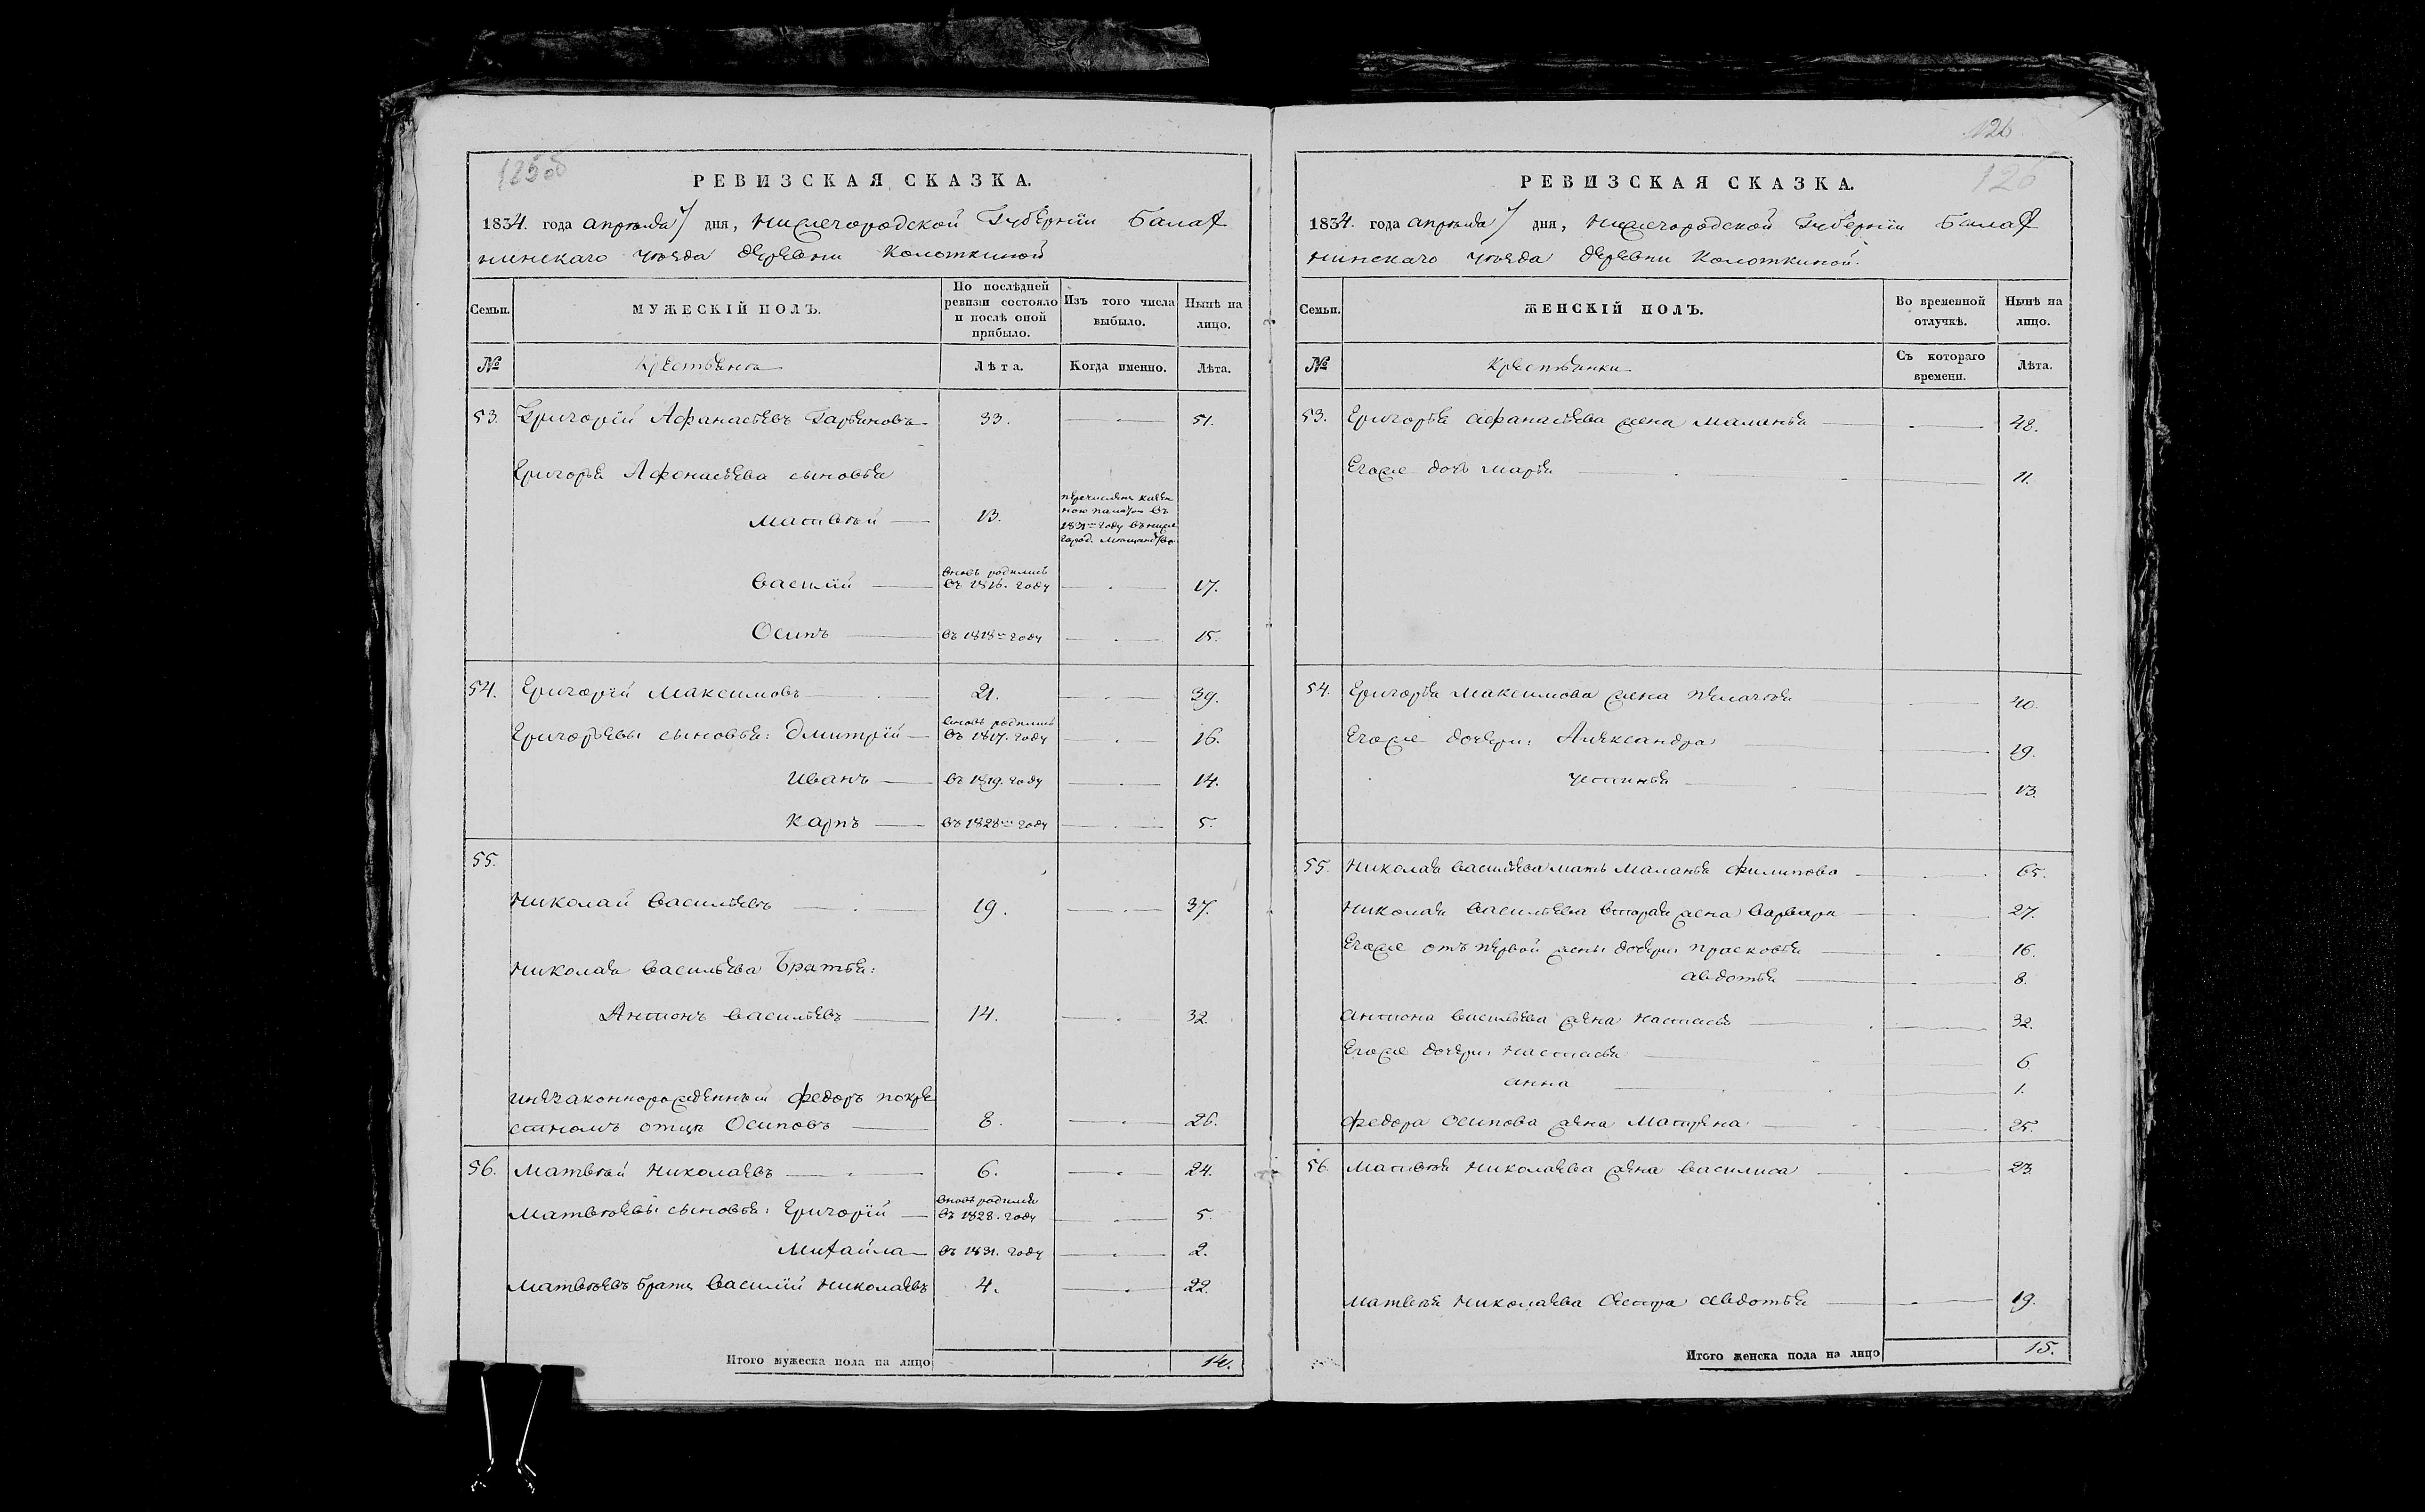 125об
РЕВИЗСКАЯ СКАЗКА.
1834. года апреля 7 дня, Нижегородской Губернiи Балах
нинскаго уѣзда деревни Колоткиной
Семьи.
МУЖЕСКIЙ ПОЛЪ.
По послѣдней
ревизiи состояло
и послѣ оной
прибыло.
Изъ того числа
выбыло.
Нынѣ на
лицо.
№
Крестьяне
Лѣта.
Когда именно.
Лѣта.
53. Григорiй Афанасьевъ 33. 51.
Григорья Афонасьева сыновья
Матвѣй 13.
перечисленъ казен
ною палатою въ
1831м году въ ниже
город. мещанство
вновь родились
Василiй въ 1816. году 17.
Осипъ въ 1818м году 15.
54. Григорiй Максимовъ 21. 39.
вновь родились
Григорьевы сыновья: Дмитрiй въ 1817. году 16.
Иванъ въ 1819. году 14.
Карпъ въ 1828м году 5.
55.
Николай Васильевъ 19. 37.
Николая Васильева Братья:
Антонъ Васильевъ 14. 32.
инезаконнорожденный Федоръ покре
стномъ отцѣ Осиповъ 8. 26.
56. Матвѣй Николаевъ 6. 24.
вновь родился
Матвѣевы сыновья: Григорiй въ 1828. году 5.
Михайла въ 1831. году 2.
Матвѣевъ братъ Василiй Николаевъ 4. 22.
Итого мужеска пола на лицо 14.
126
126
РЕВИЗСКАЯ СКАЗКА.
1834. года апреля 7 дня, Нижегородской Губернiи Балах
нинскаго уѣзда деревни Колоткиной.
Семьи.
ЖЕНСКIЙ ПОЛЪ.
Во временной
отлучкѣ.
Нынѣ на
лицо.
№
Крестьянки
Съ котораго
времени.
Лѣта.
53. Григорья Афанасьева жена Маланья 48.
Егоже дочь Марья 11.
54. Григорья Максимова жена Пелагѣя 40.
Егоже дочери: Александра 19.
Устинья 13.
55. Николая Васильева мать Маланья Филипова 65.
Николая Васильева вторая жена Варвара 27.
Егоже отъ первой жены дочери: Прасковья 16.
Авдотья 8.
Антона Васильева жена Настасья 32.
Егоже дочери: Настасья 6.
Анна 1.
Федора Осипова жена Матрена 25.
56. Матвѣя Николаева жена Василиса 23.
Матвѣя Николаева сестра Авдотья 19.
Итого женска пола на лицо 15.